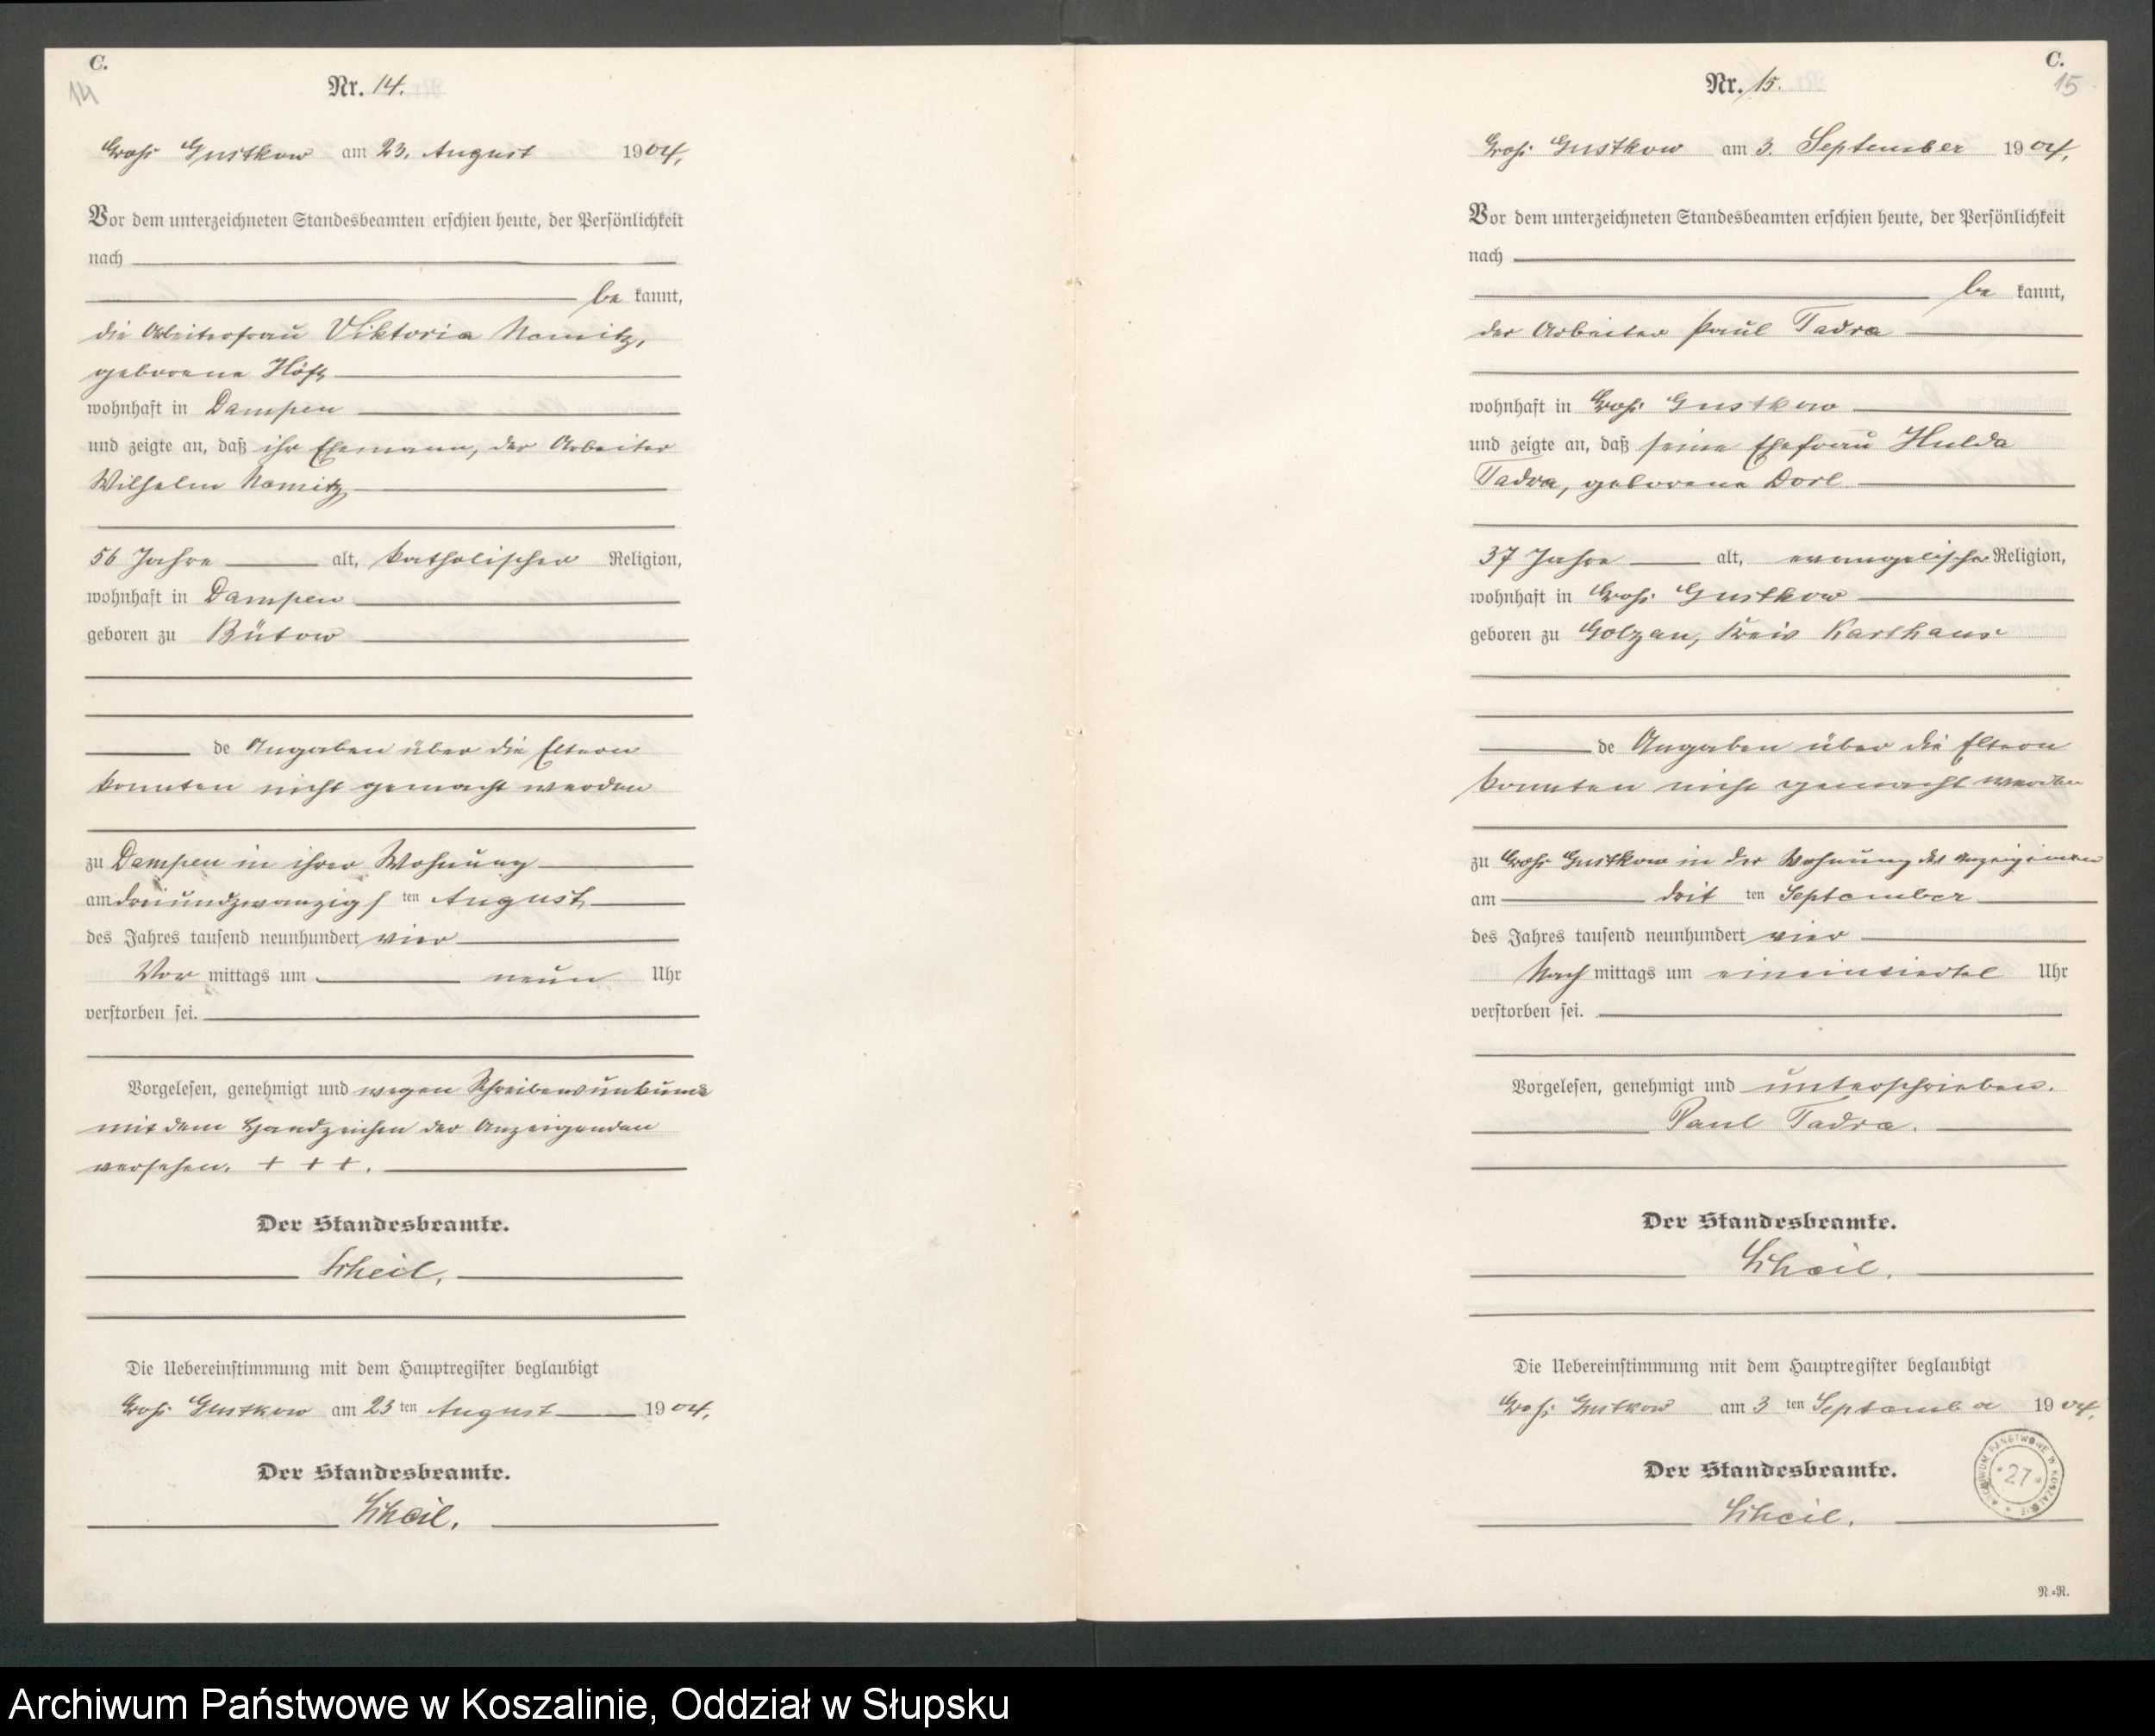 C.
14
Nr. 14.
Groß Gustkow am 23. August 1904.
Vor dem unterzeichneten Standesbeamten erschien heute, der Persönlichkeit
nach
be kannt,
die Arbeiterfrau Viktoria Namitz,
geborene Höft
wohnhaft in Dampen
und zeigte an, daß ihr Ehemann, der Arbeiter
Wilhelm Namitz
56 Jahre alt, katholischer Religion,
wohnhaft in Dampen
geboren zu Bütow
de Angaben über die Eltern
konnten nicht gemacht werden
zu Dampen in ihrer Wohnung
am dreiundzwanzigs ten August
des Jahres tausend neunhundert vier
Vor mittags um neun Uhr
verstorben sei.
Vorgelesen, genehmigt und wegen Schreibensunkunde
mit dem Handzeichen der Anzeigenden
versehen. + + +.
Der Standesbeamte.
Scheil.
Die Uebereinstimmung mit dem Hauptregister beglaubigt
Groß Gustkow am 23 ten August 1904.
Der Standesbeamte.
Scheil.
C.
15
Nr. 15.
Groß Gustkow am 3. September 1904.
Vor dem unterzeichneten Standesbeamten erschien heute, der Persönlichkeit
nach
be kannt,
der Arbeiter Paul Tadra
wohnhaft in Groß Gustkow
und zeigte an, daß seine Ehefrau Hulda
Tadra, geborene Dorl
37 Jahre alt, evangelischer Religion,
wohnhaft in Groß Gustkow
geboren zu Golzau, Kreis Karthaus
de Angaben über die Eltern
konnten nicht gemacht werden
zu Groß Gustkow in der Wohnung des
am drit ten September
des Jahres tausend neunhundert vier
Nach mittags um eineinviertel Uhr
verstorben sei.
Vorgelesen, genehmigt und unterschrieben.
Paul Tadra.
Der Standesbeamte.
Scheil.
Die Uebereinstimmung mit dem Hauptregister beglaubigt
Groß Gustkow am 3 ten September 1904.
Der Standesbeamte.
Scheil.
ARCHIWUM PAŃSTWOWE W KOSZALINIE
27
N.-R.
Archiwum Państwowe w Koszalinie, Oddział w Słupsku